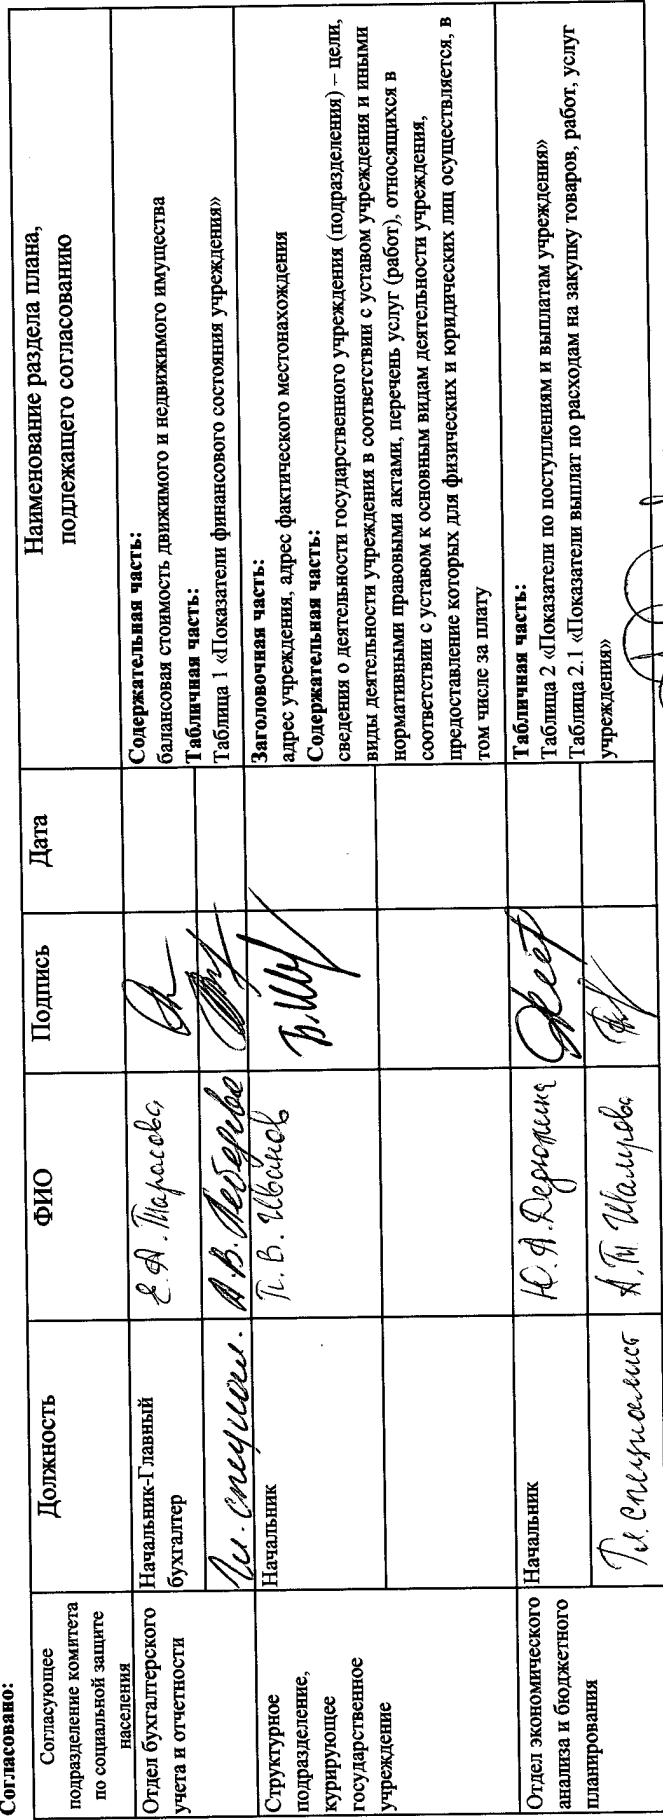 Согласовано:
Согласующее
подразделение комитета
по социальной защите
населения
Должность
ФИО
Подпись
Дата
Наименование раздела плана,
подлежащего согласованию
Отдел бухгалтерского
учета и отчетности
Начальник-Главный
бухгалтер
Е.А. Тарасова
Содержательная часть:
балансовая стоимость движимого и недвижимого имущества
Табличная часть:
Таблица 1 «Показатели финансового состояния учреждения»
Гл. специал. А.В.
Структурное
подразделение,
курирующее
государственное
учреждение
Начальник
П.В. Иванов
Заголовочная часть:
адрес учреждения, адрес фактического местонахождения
Содержательная часть:
сведения о деятельности государственного учреждения (подразделения) – цели,
виды деятельности учреждения в соответствии с уставом учреждения и иными
нормативными правовыми актами, перечень услуг (работ), относящихся в
соответствии с уставом к основным видам деятельности учреждения,
предоставление которых для физических и юридических лиц осуществляется, в
том числе за плату
Отдел экономического
анализа и бюджетного
планирования
Начальник
Ю.А. Дерюжина
Табличная часть:
Таблица 2 «Показатели по поступлениям и выплатам учреждения»
Таблица 2.1 «Показатели выплат по расходам на закупку товаров, работ, услуг
учреждения»
Гл. специалист
А.Т. Шамурова